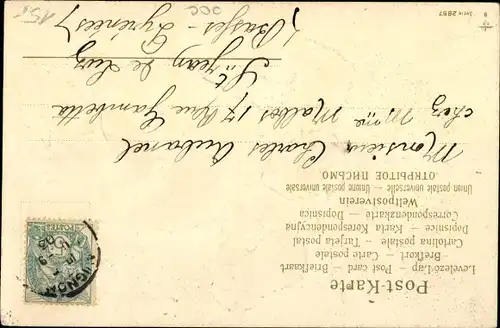 Post-Karte
Levelező-Lap — Post card — Briefkaart
Brefkort — Carte postale
Cartolina postale — Tarjeta postal
Dopisnice — Karta Korespondencyjna
Correspondenzkarte — Dopisnica
Weltpostverein
Union postale universelle — Unione postale universale
ОТКРЫТОЕ ПИСЬМО
Monsieur Charles Aubanel
chez Mme Malbos 17 Rue Gambetta
St Jean de Luz
(Basses-Pyrénées)
POSTES
AVIGNON
Serie 2857